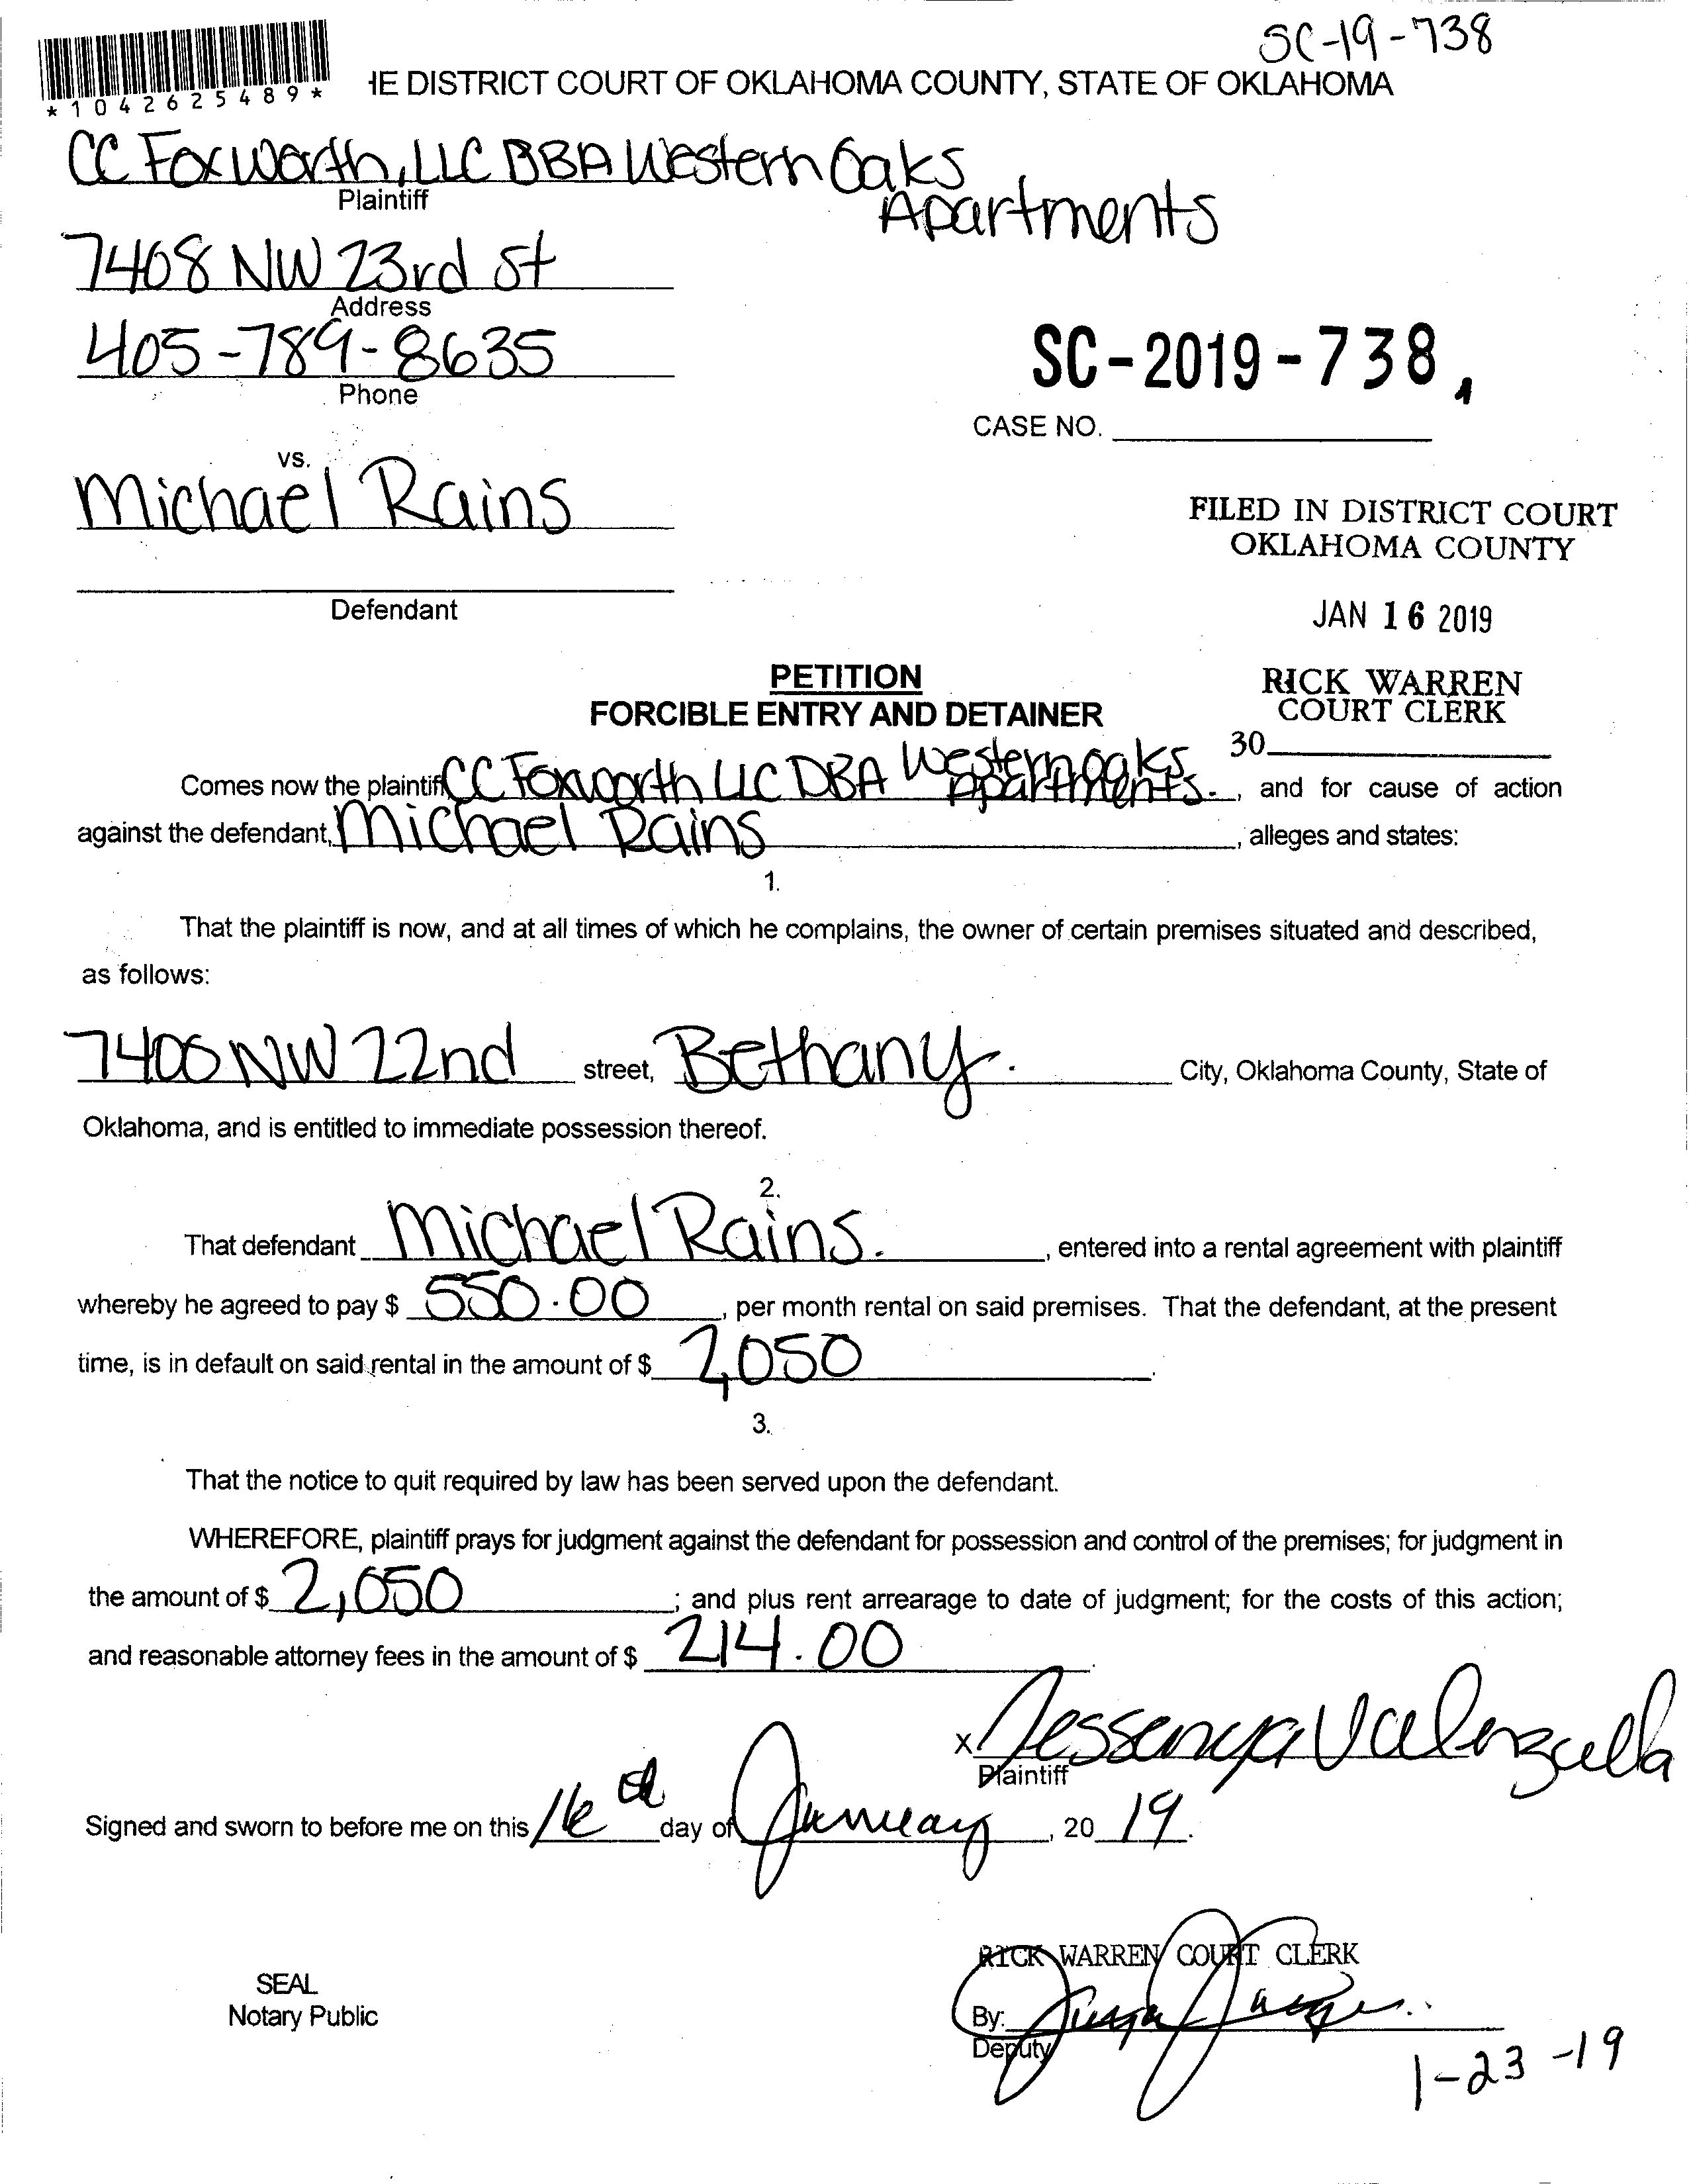 SC-19-738
*1042625489*
HE DISTRICT COURT OF OKLAHOMA COUNTY, STATE OF OKLAHOMA
CC Foxworth, LLC DBA Western Oaks
Apartments
Plaintiff
7408 NW 23rd St
Address
405-789-8635
Phone
SC-2019-738
CASE NO.
vs.
Michael Rains
FILED IN DISTRICT COURT
OKLAHOMA COUNTY
Defendant
JAN 16 2019
PETITION
FORCIBLE ENTRY AND DETAINER
RICK WARREN
COURT CLERK
30
Comes now the plaintiff CC Foxworth LLC DBA Western Oaks Apartments., and for cause of action
against the defendant, Michael Rains, alleges and states:
1.
That the plaintiff is now, and at all times of which he complains, the owner of certain premises situated and described,
as follows:
7400 NW 22nd street, Bethany. City, Oklahoma County, State of
Oklahoma, and is entitled to immediate possession thereof.
2.
That defendant Michael Rains., entered into a rental agreement with plaintiff
whereby he agreed to pay $ 550.00, per month rental on said premises. That the defendant, at the present
time, is in default on said rental in the amount of $ 2,050.
3.
That the notice to quit required by law has been served upon the defendant.
WHEREFORE, plaintiff prays for judgment against the defendant for possession and control of the premises; for judgment in
the amount of $ 2,050; and plus rent arrearage to date of judgment; for the costs of this action;
and reasonable attorney fees in the amount of $ 214.00.
X Jessenya Valenzuela
Plaintiff
Signed and sworn to before me on this 16th day of January, 2019.
RICK WARREN COURT CLERK
SEAL
Notary Public
By:
Deputy
1-23-19